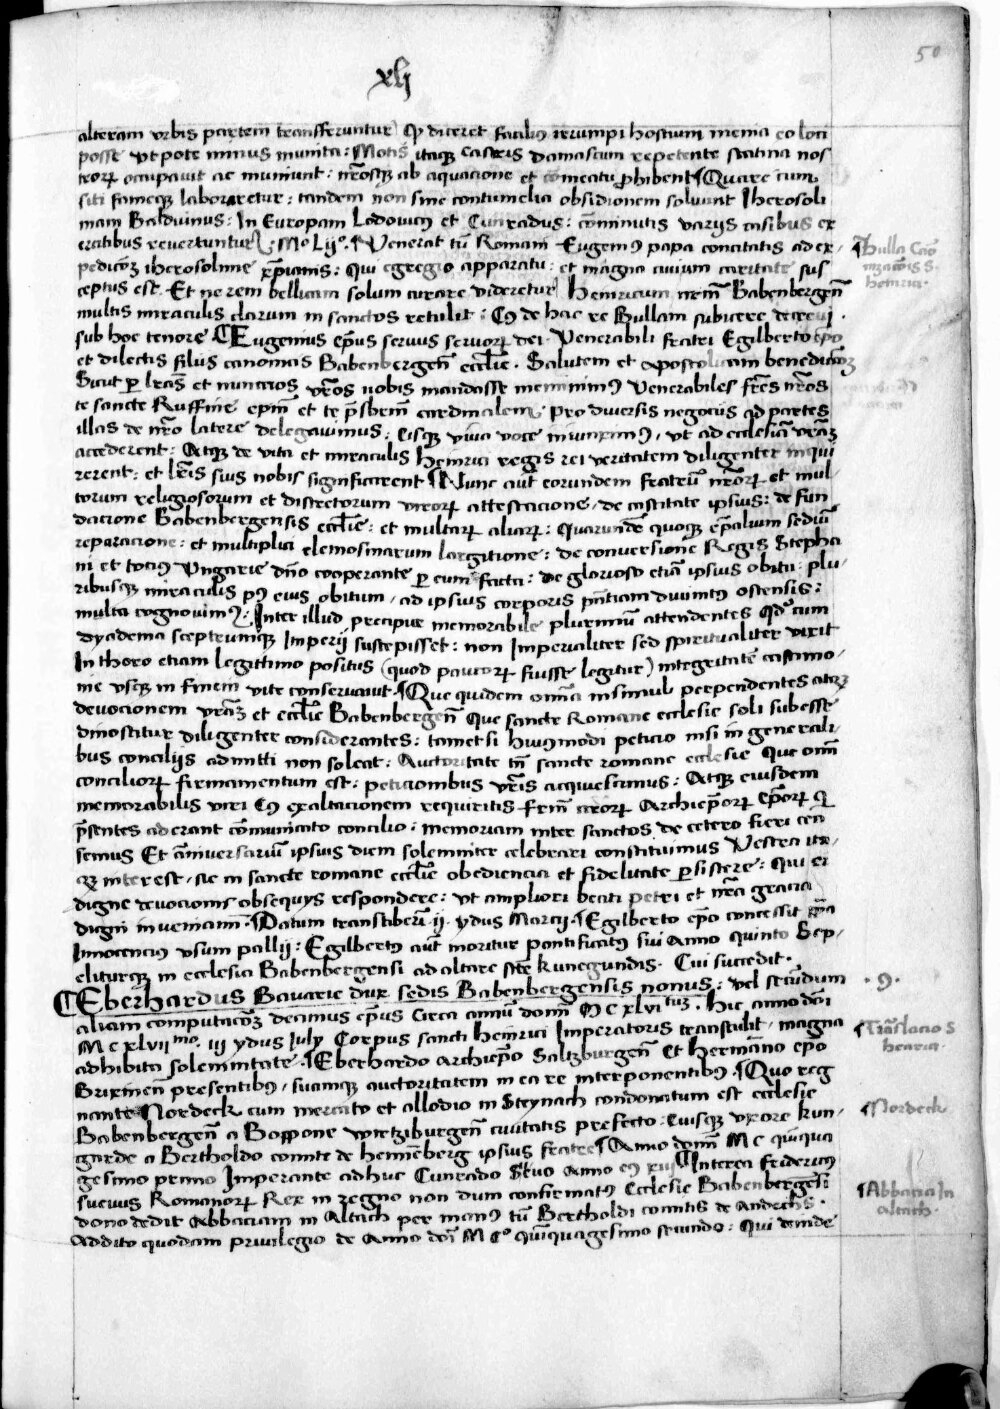 50
xlj
alteram vrbis partem transfferuntur) Qꝫ diceret facilius irrumpi hostium menia eo loci
posse vt pote minus munita: Motis itaqꝫ castris damascum repetente statina nos
troꝝ occupauit ac muniunt: nrōsqꝫ ab aquacione et cōmeatu ꝓhibent ¶Quare cum
siti fameqꝫ laboraretur: tandem non sine contumelia obsidionem soluunt Iherosoli
mam Balduinus: In Europam Lodouicus et Cunradus: cōminutis varijs casibus ex
ercitibus revertuntur: Mo Lijo. ¶Venerat tū Romam Eugenius papa concitatis ad ex
pedicōꝫ iherosolime xp̄ianis: Qui egregio apparatu: et magna ciuium caritate sus
ceptus est. Et ne rem bellicam solum curare videretur Heinricum nrm̄ Babenbergen̄
multis miraculis clarum in sanctos retulit: Cuius de hac re Bullam subicere decreui.
sub hoc tenore ¶Eugenius ep̄us seruus seruoꝝ dei. Venerabili fratri Egilberto ep̄o
et dilectis filijs canonicis Babenbergen̄ eccl̄ie. Salutem et apostolicam benedicōꝫ
Sicut ꝑ lrās et nuncios vrōs nobis mandasse meminimus Venerabiles frēs nrōs
te sancte Ruffine ep̄m et te p̄sbrm̄ cardinalem. Pro diuersis negocijs ad partes
illas de nrō latere delegauimus: Eisqꝫ viua voce iniunximus, vt ad ecclesiā vrāꝫ
accederent: Atqꝫ de vita et miraculis Heinrici regis rei veritatem diligenter inqui
rerent: et lrīs suis nobis significarent ¶Nunc aūt eorundem fratrū nrōꝝ et mul
torum religiosorum et discretorum viroꝝ attestacione, de castitate ipsius: de fun
dacione Babenbergensis eccl̄ie: et multaꝝ aliaꝝ: Quarundē quoqꝫ ep̄alium sediū
reparacione: et multiplici elemosinarum largitione: de conuersione Regis Stepha
ni et tocius Vngarie dn̄o cooperante ꝑ eum facta: de glorioso etiā ipsius obitu: plu
ribusqꝫ miraculis pꝯ eius obitum, ad ipsius corporis pn̄tiam diuinitus ostensis:
multa cognouimus: Inter illud precipue memorabile plurimū attendentes Qdꝫ cum
dyadema sceptrumqꝫ Imperij suscepisset: non Imperialiter sed spiritualiter vixit
In thoro etiam legittimo positus (quod paucoꝝ fuisse legitur) integritatē castimo
nie vsqꝫ in finem vite conseruauit. ¶Que quidem omnia insimul perpendentes atqꝫ
deuocionem vrāꝫ et eccl̄ie Babenbergen̄ Que sancte Romane ecclesie soli subesse
dinoscitur diligenter considerantes: tametsi huiusmodi peticio nisi in generali
bus concilijs admitti non soleat: Auctoritate tn̄ sancte romane ecclesie Que omn̄
concilioꝝ firmamentum est: peticionibus vrīs acquiescimus: Atqꝫ eiusdem
memorabilis viri Cuius exaltacionem requiritis frm̄ nroꝝ Archiep̄oꝝ ep̄oꝝ Qui
p̄sentes aderant cōmunicato concilio: memoriam inter sanctos de cetero fieri cen
semus Et anniuersariū ipsius diem solemniter celebrari constituimus Vestra ita
qꝫ interest, sic in sancte romane eccl̄ie obediencia et fidelitate ꝑsistere: Qui ei
digne deuocionis obsequijs respondere: vt ampliori beati petri et nrā gracia
digni inueniamī. ¶Datum transtiberī ij. ydus Marcij. ¶Egilberto ep̄o concessit
Innocencius vsum pallij: Egilbertus aūt moritur pontificatus sui Anno quinto Sep
eliturqꝫ in ecclesia Babenbergensi ad altare scē Kunegundis. Cui succedit.
¶Eberhardus Bauarie dux sedis Babenbergensis nonus: vel secundum
aliam computacōꝫ decimus ep̄us Circa annū domī M C xlvitus. Hic anno dōi
M C xlvijmo. iij ydus July Corpus sancti Heinrici Imperatoris transtulit, magna
adhibita solemnitate. ¶Eberhardo Archiep̄o Saltzburgen̄ et Hermanno ep̄o
Brixinen̄ presentibus, suamqꝫ auctoritatem in ea re interponentibus. ¶Quo reg
nante Nordeck cum mercato et allodio in Steynach condonatum est ecclesie
Babenbergen̄ a Boppone wirtziburgen̄ ciuitatis prefecto: Eiusqꝫ vxore Kun
garde a Bertholdo comite de henneberg ipsius fratre ¶Anno domī M C quinqua
gesimo primo Imperante adhuc Cunrado Scdo Anno eius xiij ¶Interea Fridericus
sueuus Romanoꝝ Rex in regno non dum confirmatus Ecclesie Babenbergēsi
dono dedit Abbaciam in Altach per manus tū Bertholdi comitis de Andechs.
Addito quodam priuilegio de Anno dōi M Co quīquagesimo secundo: Qui deinde
¶Bulla Cano
nizacōis S.
heinrici.
.9.
¶Translacio S
heinrici.
¶Nordeck
¶Abbacia In
altach.